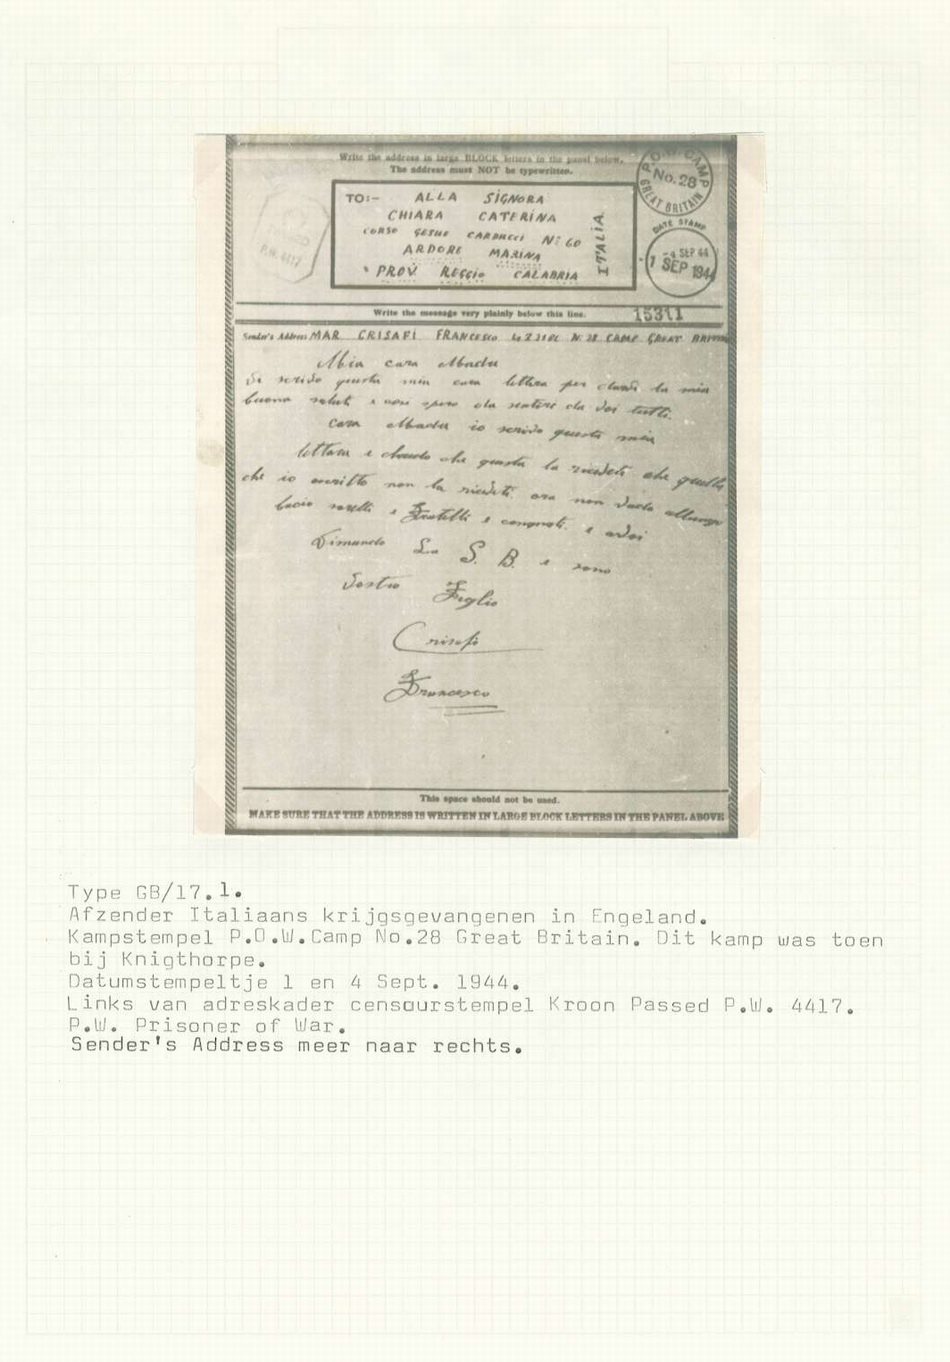 Write the address in large BLOCK letters in the panel below.
The address must NOT be typewritten.
P.O.W. CAMP
No. 28
GREAT BRITAIN
TO:- ALLA SIGNORA
CHIARA CATERINA
CORSO GESUE CARDUCCI N: 60
ARDORE MARINA
PROV. REGGIO CALABRIA
ITALIA
P.W. 4417
DATE STAMP
-4 SEP 44
1 SEP 1944
Write the message very plainly below this line.
15311
Sender's Address MAR CRISAFI FRANCESCO N. 28 CAMP GREAT BRITEN
Mia cara Madre
Vi scrivo questa mia cara lettera per darvi la mia
buona salute e così spero da sentire da voi tutti.
Cara Madre io scrivo questa mia
lettera e che questa la ricevete che quella
che io scritto non la ricevete. ora non vado allungo
bacio sorelli e Fratelli e congnati. e avoi
Dimando La S. B. e sono
Vostro Figlio
Crisafi
Francesco
This space should not be used.
MAKE SURE THAT THE ADDRESS IS WRITTEN IN LARGE BLOCK LETTERS IN THE PANEL ABOVE
Type GB/17.1.
Afzender Italiaans krijgsgevangenen in Engeland.
Kampstempel P.O.W.Camp No.28 Great Britain. Dit kamp was toen
bij Knigthorpe.
Datumstempeltje 1 en 4 Sept. 1944.
Links van adreskader censourstempel Kroon Passed P.W. 4417.
P.W. Prisoner of War.
Sender's Address meer naar rechts.